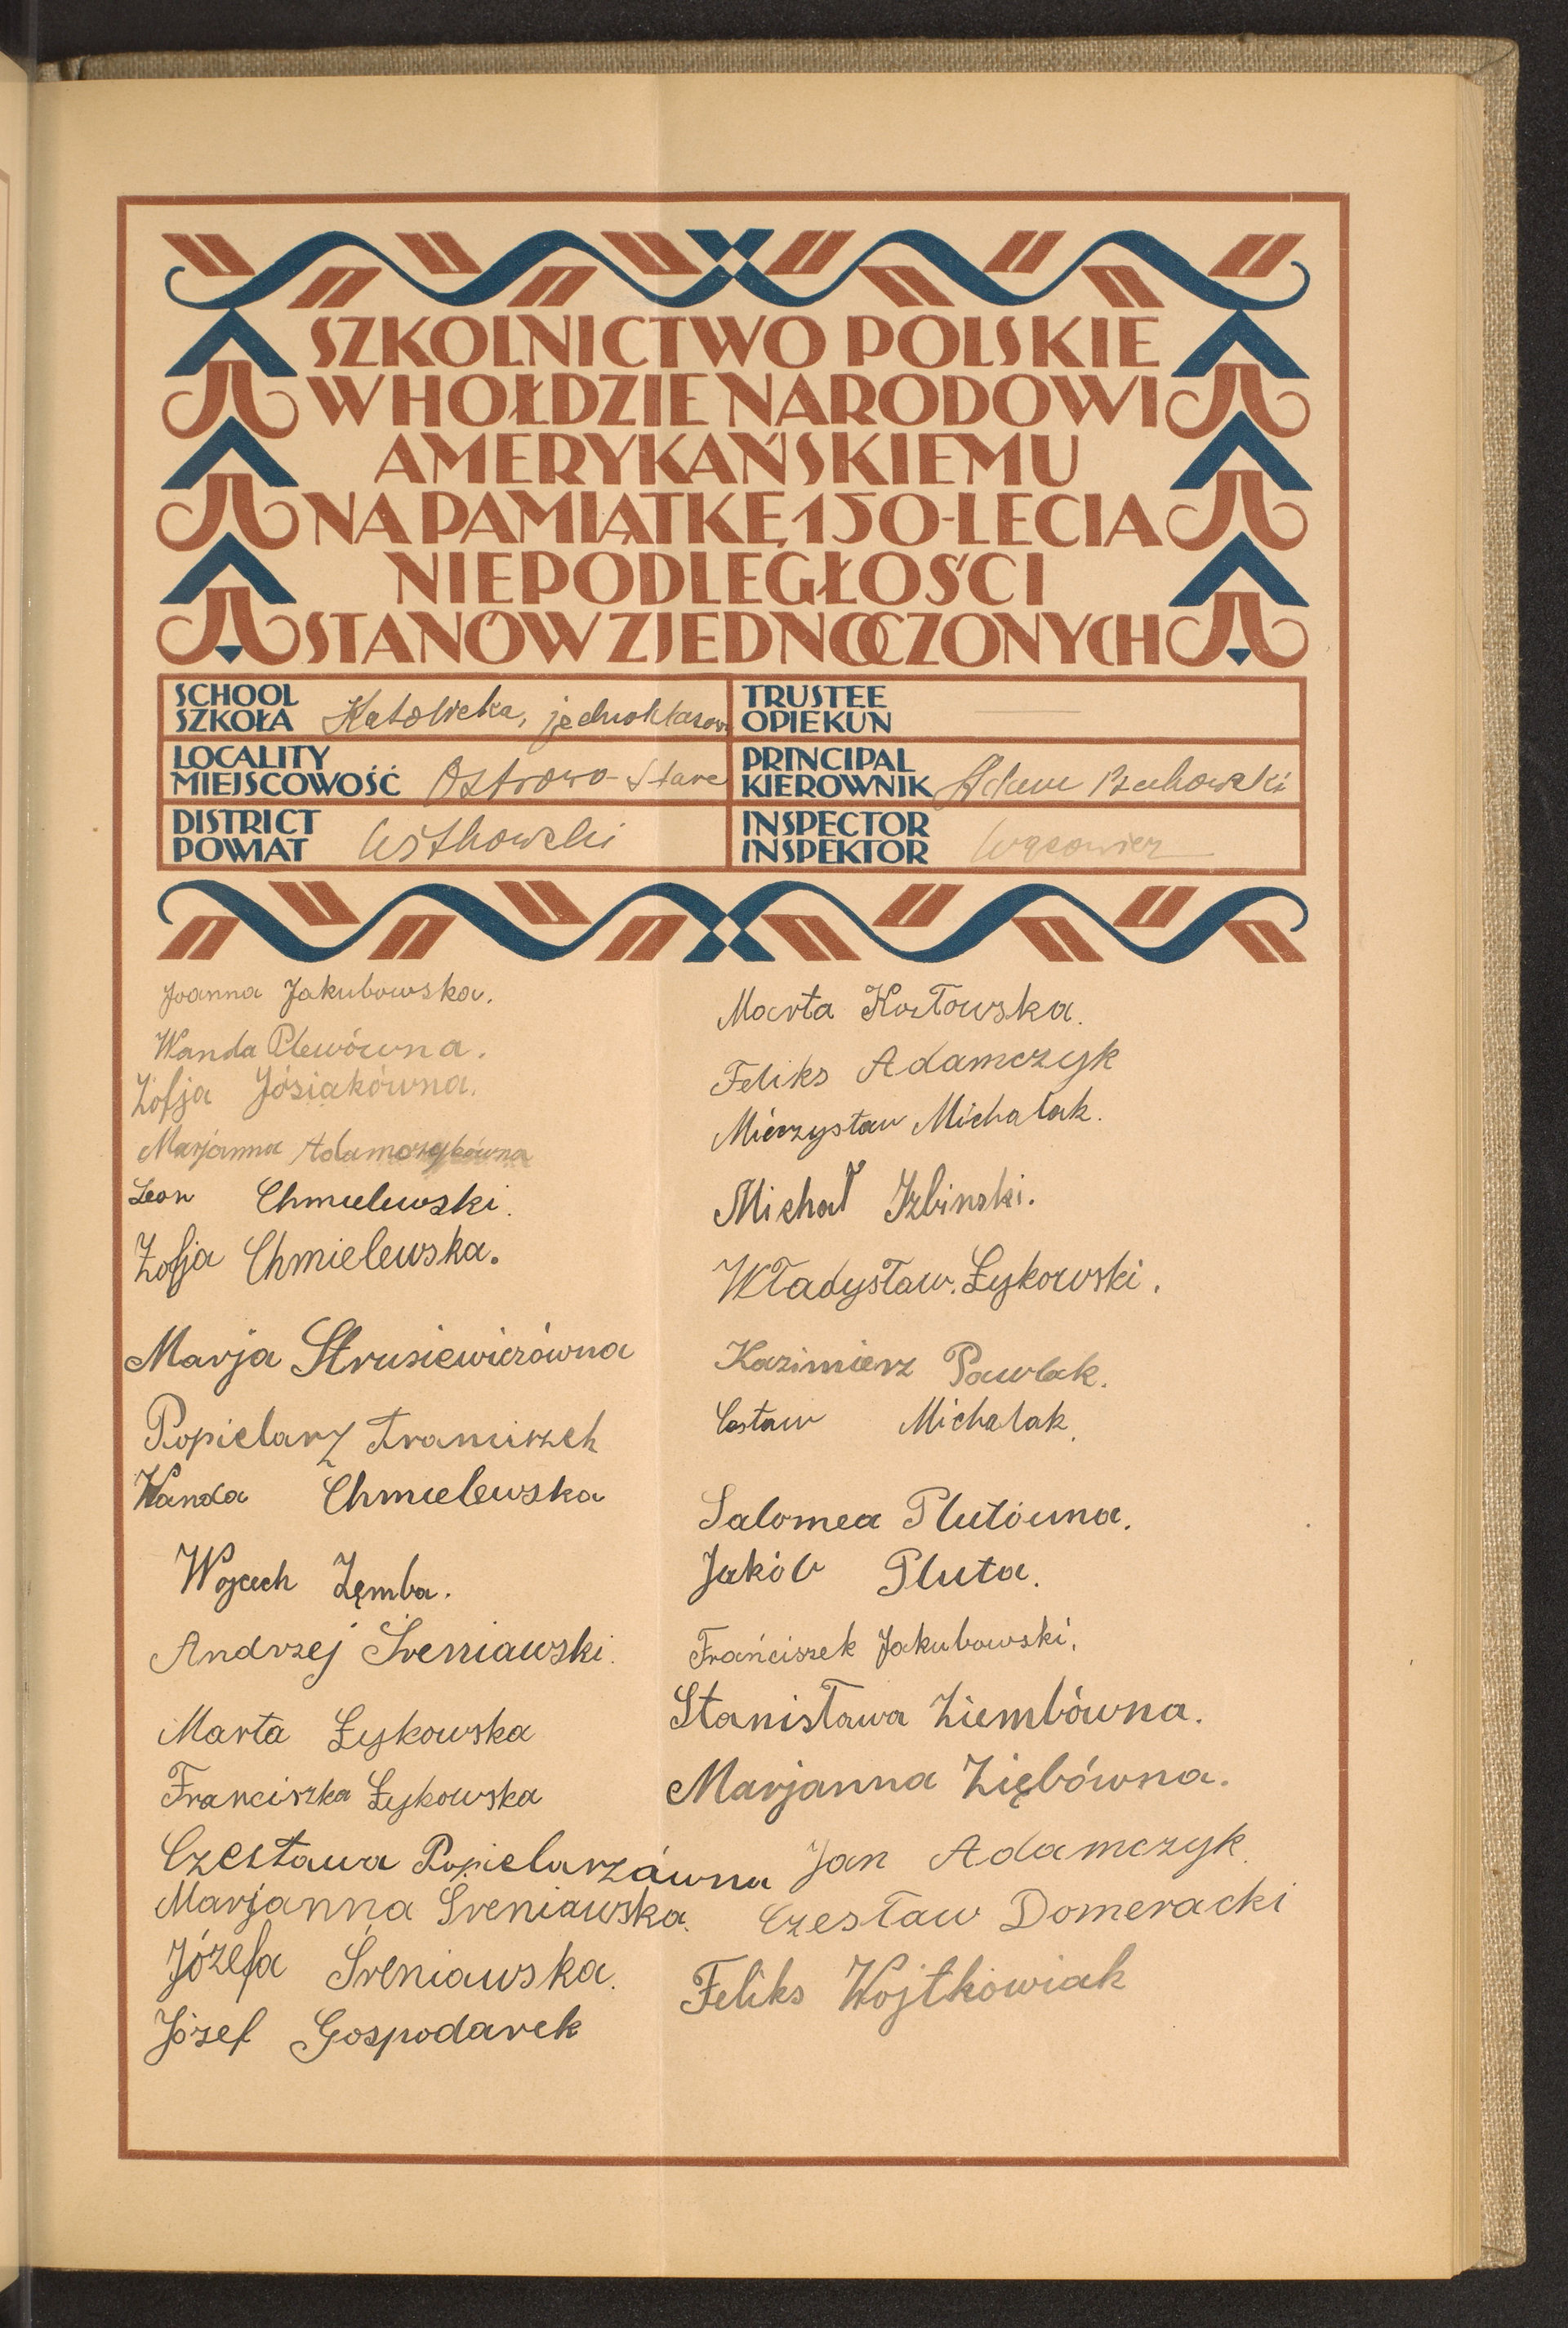 SZKOLNICTWO POLSKIE
W HOŁDZIE NARODOWI
AMERYKAŃSKIEMU
NA PAMIĄTKĘ 150-LECIA
NIEPODLEGŁOŚCI
STANÓW ZJEDNOCZONYCH
SCHOOL
SZKOŁA Katolicka, jednoklasow
TRUSTEE
OPIEKUN
LOCALITY
MIEJSCOWOŚĆ Ostrowo-Stare
PRINCIPAL
KIEROWNIK Adam
DISTRICT
POWIAT
INSPECTOR
INSPEKTOR
Joanna Jakubowska.
Wanda Plewówna.
Zofja Jósiakówna.
Marjanna Adamczykówna
Leon Chmielewski.
Zofja Chmielewska.
Marja Strusiewiczówna
Popielarz Franciszek
Wanda Chmielewska
Wojciech Zęmba.
Andrzej Śreniawski.
Marta Łykowska
Franciszka Łykowska
Czesława Popielarzówna
Marjanna Śreniawska.
Józefa Śreniawska.
Józef Gospodarek
Marta Kozłowska.
Feliks Adamczyk
Mieczysław Michalak.
Michał Izbinski.
Władysław. Łykowski.
Kazimierz Pawlak.
Michalak.
Salomea Plutówna.
Jakób Pluta.
Franciszek Jakubowski.
Stanisława Ziembówna.
Marjanna Ziębówna.
Jan Adamczyk.
Czesław Domeracki
Feliks Wojtkowiak